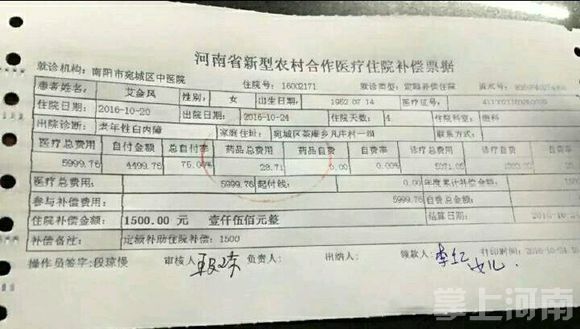 河南省新型农村合作医疗住院补偿票据
就诊机构: 南阳市宛城区中医院 住院号: 16002171 就诊类型: 定额补偿住院 流水号:
患者姓名 艾金凤 性别: 女 出生日期: 1962 07 14 医疗证号:
住院日期: 2016-10-20 出院日期: 2016-10-24 住院天数: 4 住院科室: 眼科
出院诊断: 老年性白内障 家庭住址: 联系方式:
医疗总费用 自付金额 总自付率 药品总费用 药品自费 自费率 诊疗总费用 诊疗自费 自费率
5999.76 4499.76 28.71 0.00 0.00%
医疗总费用: 5999.76 起付线: 0.00 年度累计补偿金额:
参与补偿费用: 5999.76 自费总金额:
住院补偿金额: 1500.00 元 壹仟伍佰元整 结算日期: 2016-10-
补偿备注: 定额补助住院补偿: 1500
操作员签字: 段琼慢 审核人: 负责人: 出纳人: 领款人: 李红 女儿 打印时间: 2016-10-24
掌上河南